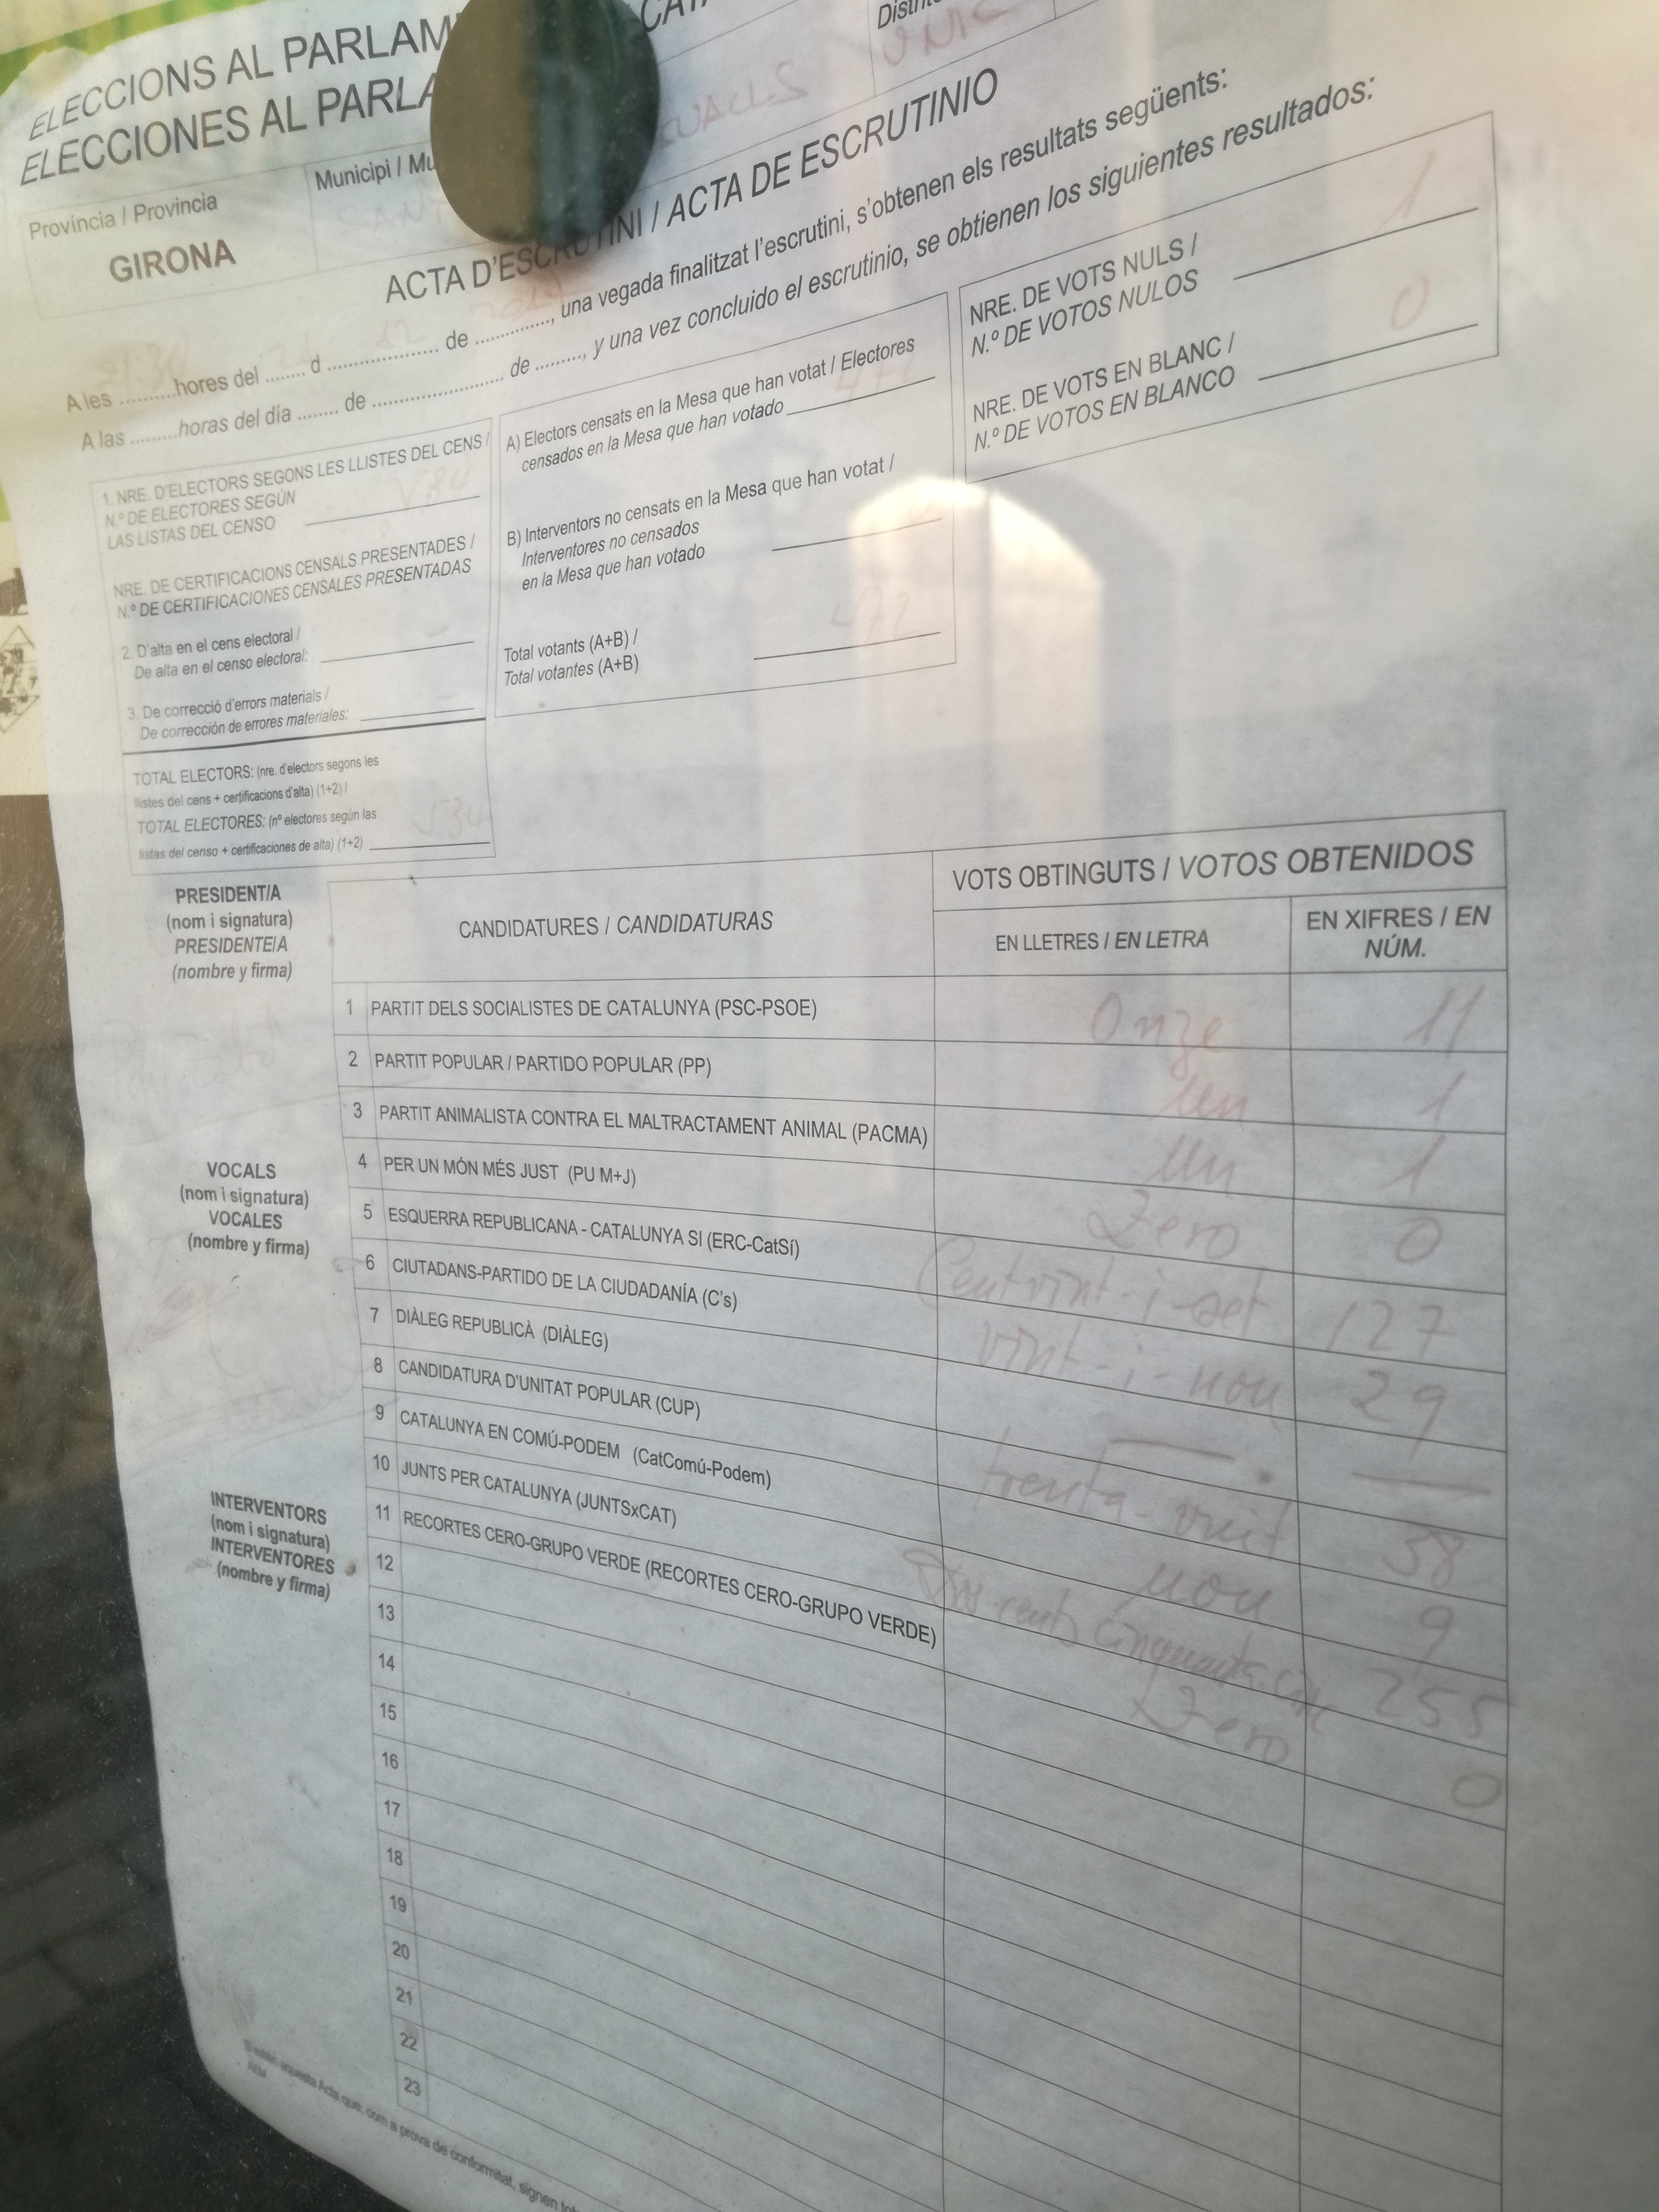 ELECCIONS AL PARLAM
ELECCIONES AL PARLA
Província / Provincia
GIRONA
Municipi / Mu
ACTA D'ESCRUTINI / ACTA DE ESCRUTINIO
A les ..........hores del ........ d ...................... de ..............., una vegada finalitzat l'escrutini, s'obtenen els resultats següents:
A las .........horas del día ........ de .......................... de ........., y una vez concluido el escrutinio, se obtienen los siguientes resultados:
1. NRE. D'ELECTORS SEGONS LES LLISTES DEL CENS /
N.º DE ELECTORES SEGÚN
LAS LISTAS DEL CENSO
NRE. DE CERTIFICACIONS CENSALS PRESENTADES /
N.º DE CERTIFICACIONES CENSALES PRESENTADAS
2. D'alta en el cens electoral /
De alta en el censo electoral:
3. De correcció d'errors materials /
De corrección de errores materiales:
TOTAL ELECTORS: (nre. d'electors segons les
llistes del cens + certificacions d'alta) (1+2) /
TOTAL ELECTORES: (nº electores según las
listas del censo + certificaciones de alta) (1+2)
A) Electors censats en la Mesa que han votat / Electores
censados en la Mesa que han votado
B) Interventors no censats en la Mesa que han votat /
Interventores no censados
en la Mesa que han votado
Total votants (A+B) / 472
Total votantes (A+B)
NRE. DE VOTS NULS / 1
N.º DE VOTOS NULOS
NRE. DE VOTS EN BLANC / 0
N.º DE VOTOS EN BLANCO
PRESIDENT/A
(nom i signatura)
PRESIDENTE/A
(nombre y firma)
VOCALS
(nom i signatura)
VOCALES
(nombre y firma)
INTERVENTORS
(nom i signatura)
INTERVENTORES
(nombre y firma)
CANDIDATURES / CANDIDATURAS
VOTS OBTINGUTS / VOTOS OBTENIDOS
EN LLETRES / EN LETRA
EN XIFRES / EN
NÚM.
1 PARTIT DELS SOCIALISTES DE CATALUNYA (PSC-PSOE) Onze 11
2 PARTIT POPULAR / PARTIDO POPULAR (PP) Un 1
3 PARTIT ANIMALISTA CONTRA EL MALTRACTAMENT ANIMAL (PACMA) Un 1
4 PER UN MÓN MÉS JUST (PU M+J) Zero 0
5 ESQUERRA REPUBLICANA - CATALUNYA SI (ERC-CatSí) Cent vint-i-set 127
6 CIUTADANS-PARTIDO DE LA CIUDADANÍA (C's) vint-i-nou 29
7 DIÀLEG REPUBLICÀ (DIÀLEG) — —
8 CANDIDATURA D'UNITAT POPULAR (CUP) trenta-vuit 38
9 CATALUNYA EN COMÚ-PODEM (CatComú-Podem) nou 9
10 JUNTS PER CATALUNYA (JUNTSxCAT) Dos-cents cinquanta-cinc 255
11 RECORTES CERO-GRUPO VERDE (RECORTES CERO-GRUPO VERDE) Zero 0
12
13
14
15
16
17
18
19
20
21
22
23
aquesta Acta que, com a prova de conformitat, signen